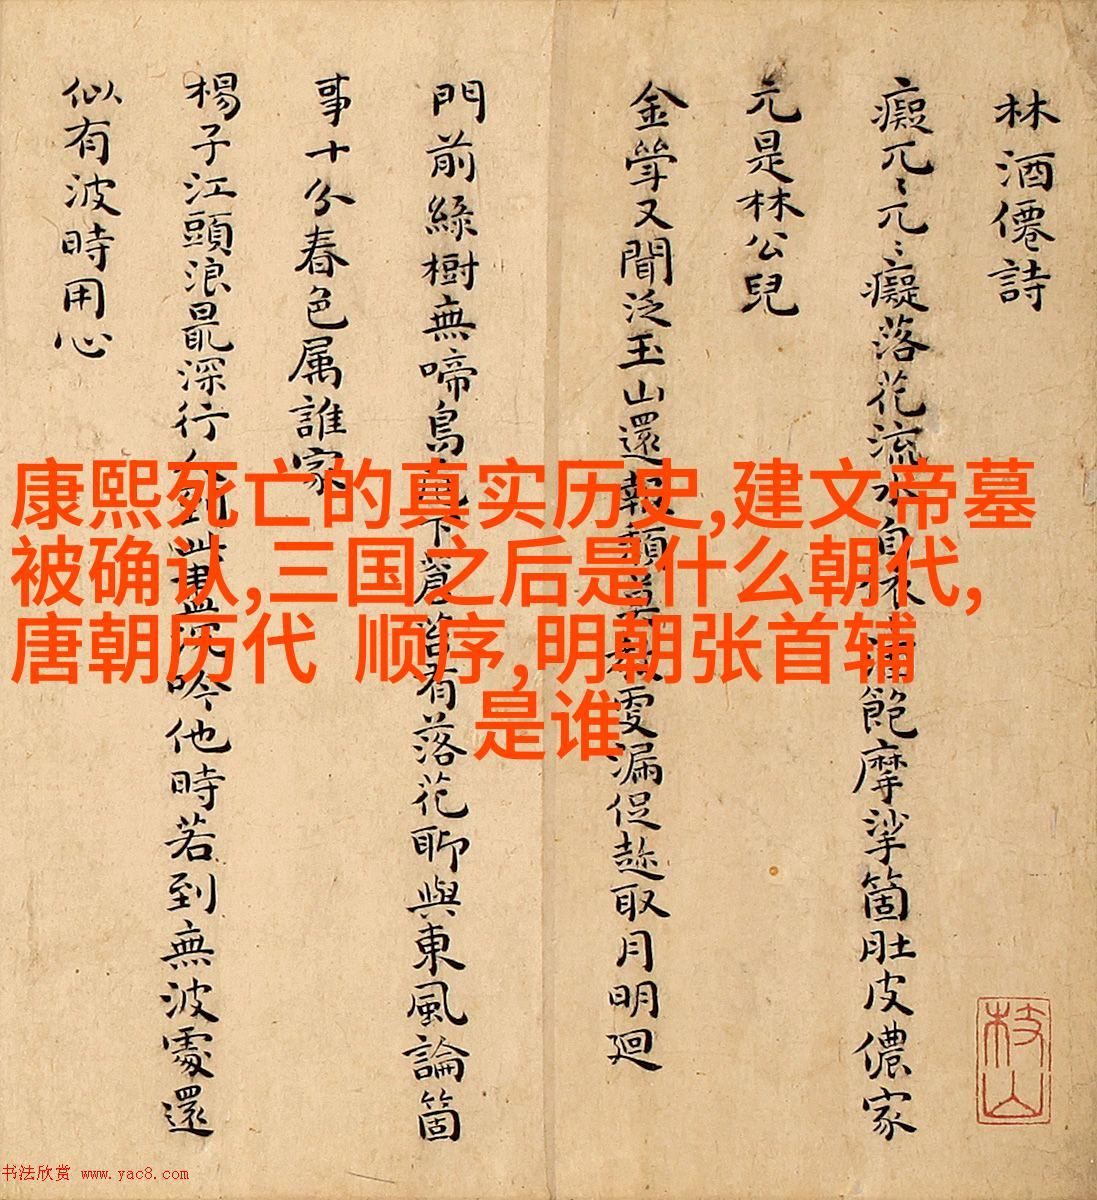 林酒僊詩
癡兀〻兀〻癡落花流水自飽摩挲箇肚皮儂家
元是林公兒
金斝又聞泛玉山還報頹莫教更漏促趂取月明廻
門前綠樹無啼鳥庭下蒼苔有落花聊與東風論箇
事十分春色属誰家
楊子江頭浪最深行人到此盡沉吟他時若到無波處還
似有波時用心
枝山
康熙死亡的真实历史,建文帝墓
被确认,三国之后是什么朝代,
唐朝历代 顺序,明朝张首辅
是谁
书法欣赏 www.yac8.com